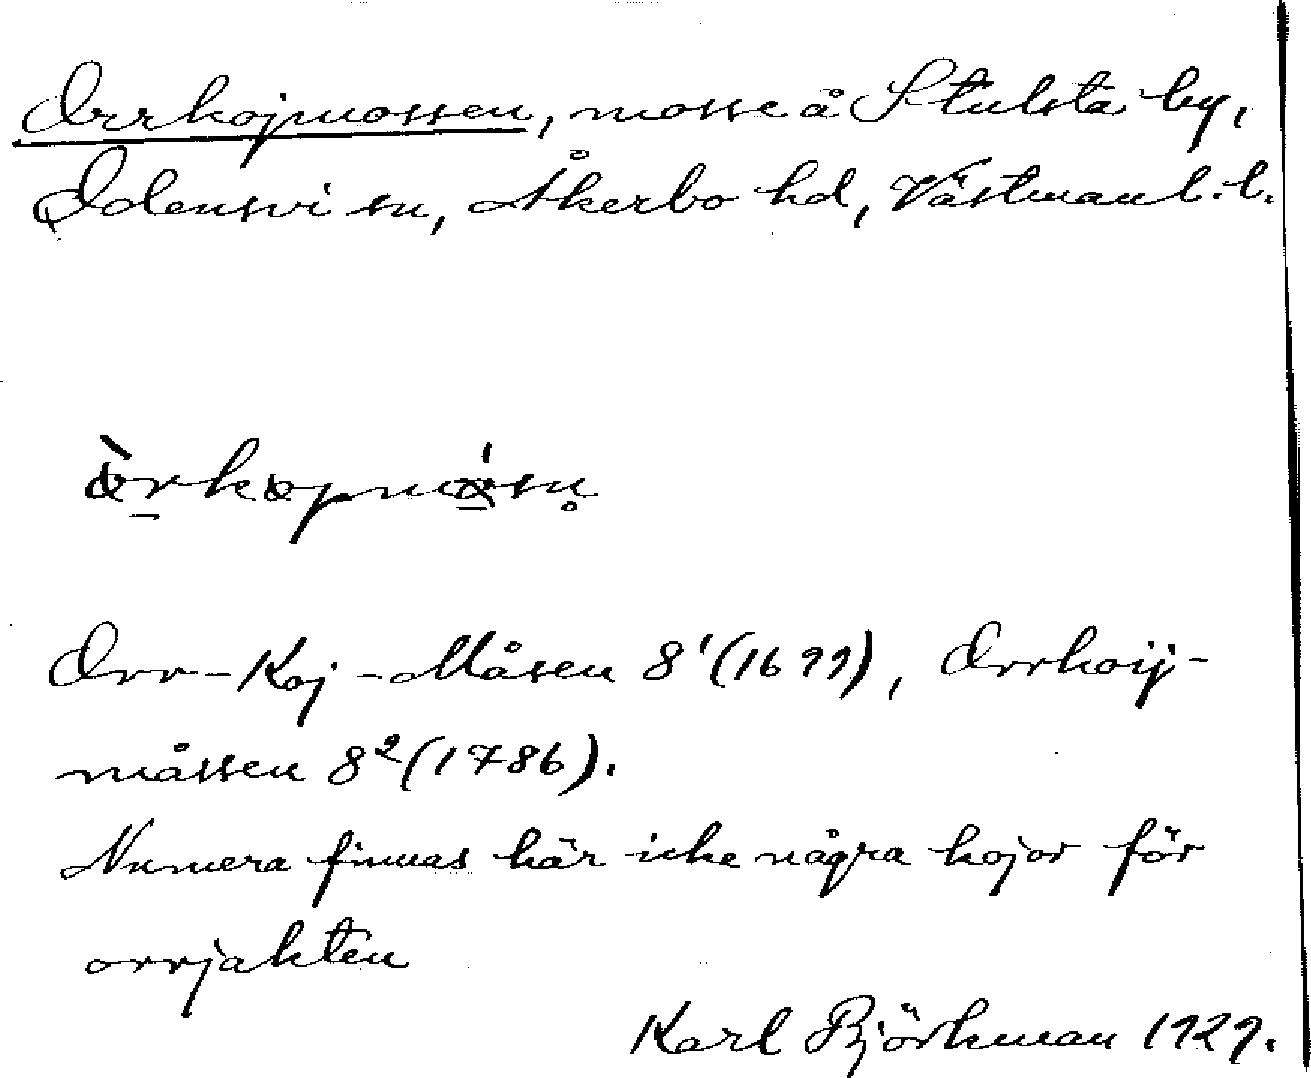 Orrkojmossen, mosse å Stulsta by,
Odensvi sn, Åkerbo hd, Västmanl. l.
Orr-Koj-Måsen 8¹(1699), Orrkoij-
måssen 8²(1786).
Numera finnas här icke några kojor för
orrjakten
Karl Björkman 1929.